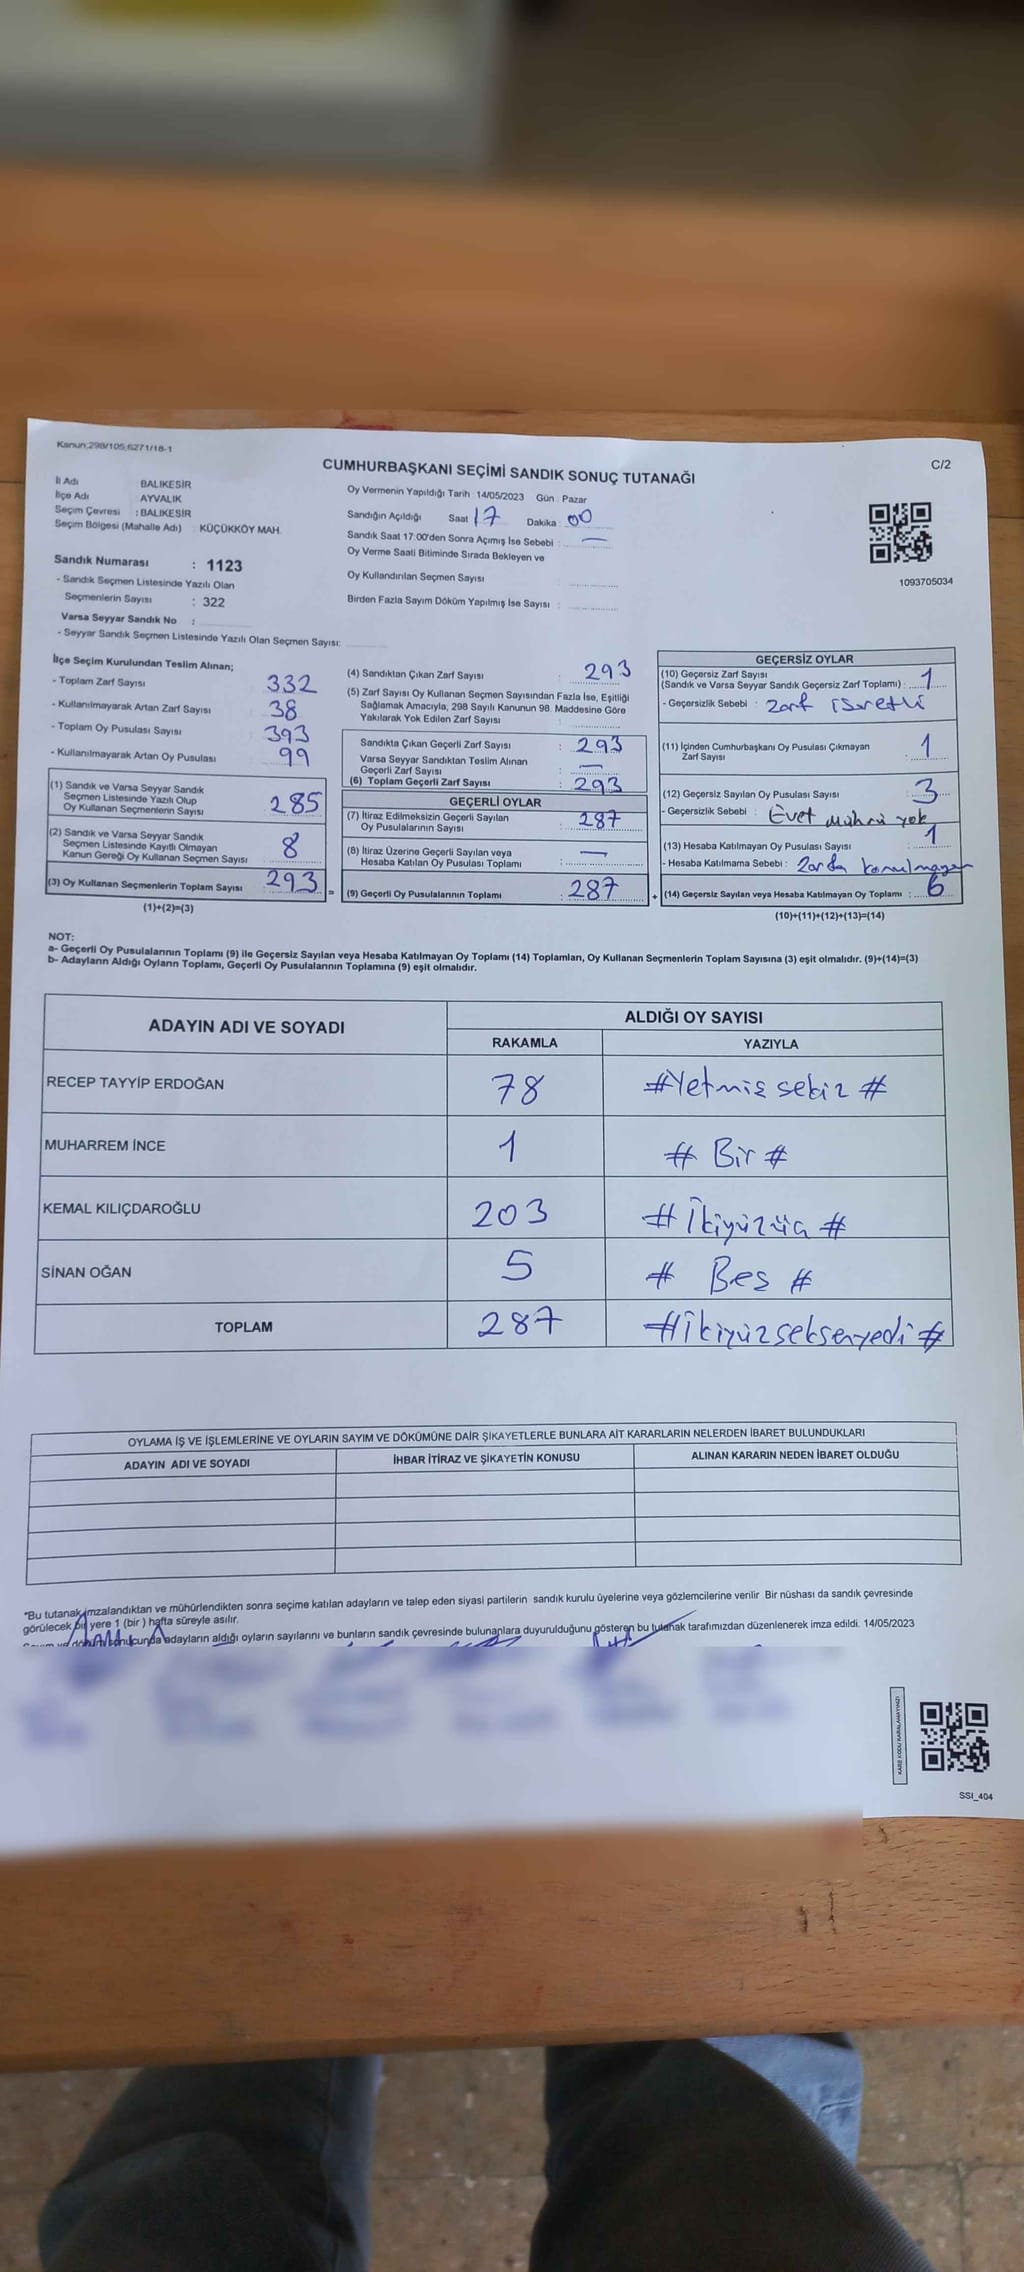 Kanun:298/105,6271/18-1
C/2
CUMHURBAŞKANI SEÇİMİ SANDIK SONUÇ TUTANAĞI
İl Adı BALIKESİR
İlçe Adı AYVALIK
Seçim Çevresi : BALIKESİR
Seçim Bölgesi (Mahalle Adı) KÜÇÜKKÖY MAH.
Sandık Numarası : 1123
- Sandık Seçmen Listesinde Yazılı Olan
Seçmenlerin Sayısı : 322
Varsa Seyyar Sandık No :
- Seyyar Sandık Seçmen Listesinde Yazılı Olan Seçmen Sayısı:
Oy Vermenin Yapıldığı Tarih 14/05/2023 Gün Pazar
Sandığın Açıldığı Saat 17 Dakika 00
Sandık Saat 17:00'den Sonra Açımış İse Sebebi : —
Oy Verme Saati Bitiminde Sırada Bekleyen ve
Oy Kullandırılan Seçmen Sayısı
Birden Fazla Sayım Döküm Yapılmış İse Sayısı
1093705034
İlçe Seçim Kurulundan Teslim Alınan;
- Toplam Zarf Sayısı 332
- Kullanılmayarak Artan Zarf Sayısı 38
- Toplam Oy Pusulası Sayısı 393
- Kullanılmayarak Artan Oy Pusulası 99
(1) Sandık ve Varsa Seyyar Sandık
Seçmen Listesinde Yazılı Olup
Oy Kullanan Seçmenlerin Sayısı 285
(2) Sandık ve Varsa Seyyar Sandık
Seçmen Listesinde Kayıtlı Olmayan
Kanun Gereği Oy Kullanan Seçmen Sayısı 8
(3) Oy Kullanan Seçmenlerin Toplam Sayısı 293 =
(1)+(2)=(3)
(4) Sandıktan Çıkan Zarf Sayısı : 293
(5) Zarf Sayısı Oy Kullanan Seçmen Sayısından Fazla İse, Eşitliği
Sağlamak Amacıyla, 298 Sayılı Kanunun 98. Maddesine Göre
Yakılarak Yok Edilen Zarf Sayısı
Sandıkta Çıkan Geçerli Zarf Sayısı : 293
Varsa Seyyar Sandıktan Teslim Alınan
Geçerli Zarf Sayısı : —
(6) Toplam Geçerli Zarf Sayısı : 293
GEÇERLİ OYLAR
(7) İtiraz Edilmeksizin Geçerli Sayılan
Oy Pusulalarının Sayısı : 287
(8) İtiraz Üzerine Geçerli Sayılan veya
Hesaba Katılan Oy Pusulası Toplamı : —
(9) Geçerli Oy Pusulalarının Toplamı : 287 +
GEÇERSİZ OYLAR
(10) Geçersiz Zarf Sayısı
(Sandık ve Varsa Seyyar Sandık Geçersiz Zarf Toplamı) : 1
- Geçersizlik Sebebi : zarf işaretli
(11) İçinden Cumhurbaşkanı Oy Pusulası Çıkmayan
Zarf Sayısı : 1
(12) Geçersiz Sayılan Oy Pusulası Sayısı : 3
- Geçersizlik Sebebi : Evet mührü yok
(13) Hesaba Katılmayan Oy Pusulası Sayısı 1
- Hesaba Katılmama Sebebi : Zarfa konulmayan
(14) Geçersiz Sayılan veya Hesaba Katılmayan Oy Toplamı : 6
(10)+(11)+(12)+(13)=(14)
NOT:
a- Geçerli Oy Pusulalarının Toplamı (9) ile Geçersiz Sayılan veya Hesaba Katılmayan Oy Toplamı (14) Toplamları, Oy Kullanan Seçmenlerin Toplam Sayısına (3) eşit olmalıdır. (9)+(14)=(3)
b- Adayların Aldığı Oyların Toplamı, Geçerli Oy Pusulalarının Toplamına (9) eşit olmalıdır.
ADAYIN ADI VE SOYADI
ALDIĞI OY SAYISI
RAKAMLA YAZIYLA
RECEP TAYYİP ERDOĞAN 78 #Yetmiş sekiz #
MUHARREM İNCE 1 # Bir #
KEMAL KILIÇDAROĞLU 203 # İkiyüzüç #
SİNAN OĞAN 5 # Beş #
TOPLAM 287 #İkiyüzseksenyedi #
OYLAMA İŞ VE İŞLEMLERİNE VE OYLARIN SAYIM VE DÖKÜMÜNE DAİR ŞİKAYETLERLE BUNLARA AİT KARARLARIN NELERDEN İBARET BULUNDUKLARI
ADAYIN ADI VE SOYADI İHBAR İTİRAZ VE ŞİKAYETİN KONUSU ALINAN KARARIN NEDEN İBARET OLDUĞU
*Bu tutanak imzalandıktan ve mühürlendikten sonra seçime katılan adayların ve talep eden siyasi partilerin sandık kurulu üyelerine veya gözlemcilerine verilir Bir nüshası da sandık çevresinde
görülecek bir yere 1 (bir ) hafta süreyle asılır.
Sayım ve döküm sonucunda adayların aldığı oyların sayılarını ve bunların sandık çevresinde bulunanlara duyurulduğunu gösteren bu tutanak tarafımızdan düzenlenerek imza edildi. 14/05/2023
KARE KODU KARALAMAYINIZ!
SSI_404